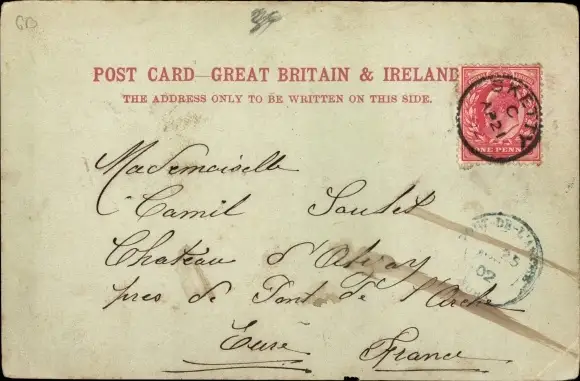 GB
POST CARD—GREAT BRITAIN & IRELAND
THE ADDRESS ONLY TO BE WRITTEN ON THIS SIDE.
SKETTY
C
ONE PENNY
Mademoiselle
Camil
Chateau
près de Pont de l'Arche
02
Eure France